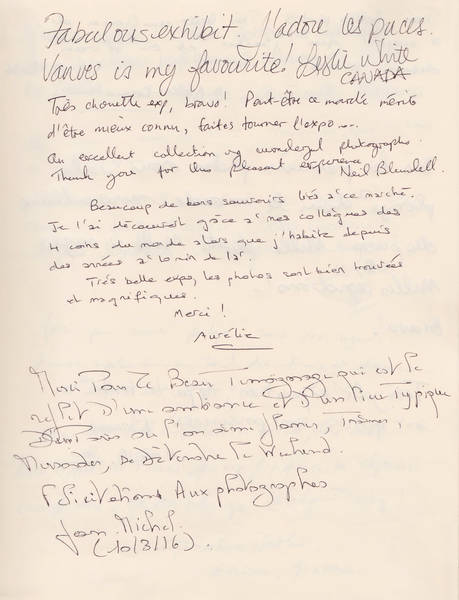 Fabulous exhibit. J'adore les puces.
Vanves is my favourite! Leslie White
CANADA
Très chouette exp, bravo! Peut-être ce marché mérite
d'être mieux connu, faites tourner l'expo....
An excellent collection of wonderful photographs.
Thank you for this pleasant experience
Neil Blundell.
Beaucoup de bons souvenirs liés à ce marché.
Je l'ai découvert grâce à mes collègues des
4 coins du monde alors que j'habite depuis
des années à 10 min de là.
Très belle expo, les photos sont bien trouvées
et magnifiques.
Merci!
Aurélie
Merci Pour ce Beau Témoignage qui est le
reflet d'un ambiance et d'un lieu Typique
de Paris où l'on aime flaner,
Marchander, se détendre le Weekend.
Félicitations Aux photographes
Jean Michel.
(10/3/16).